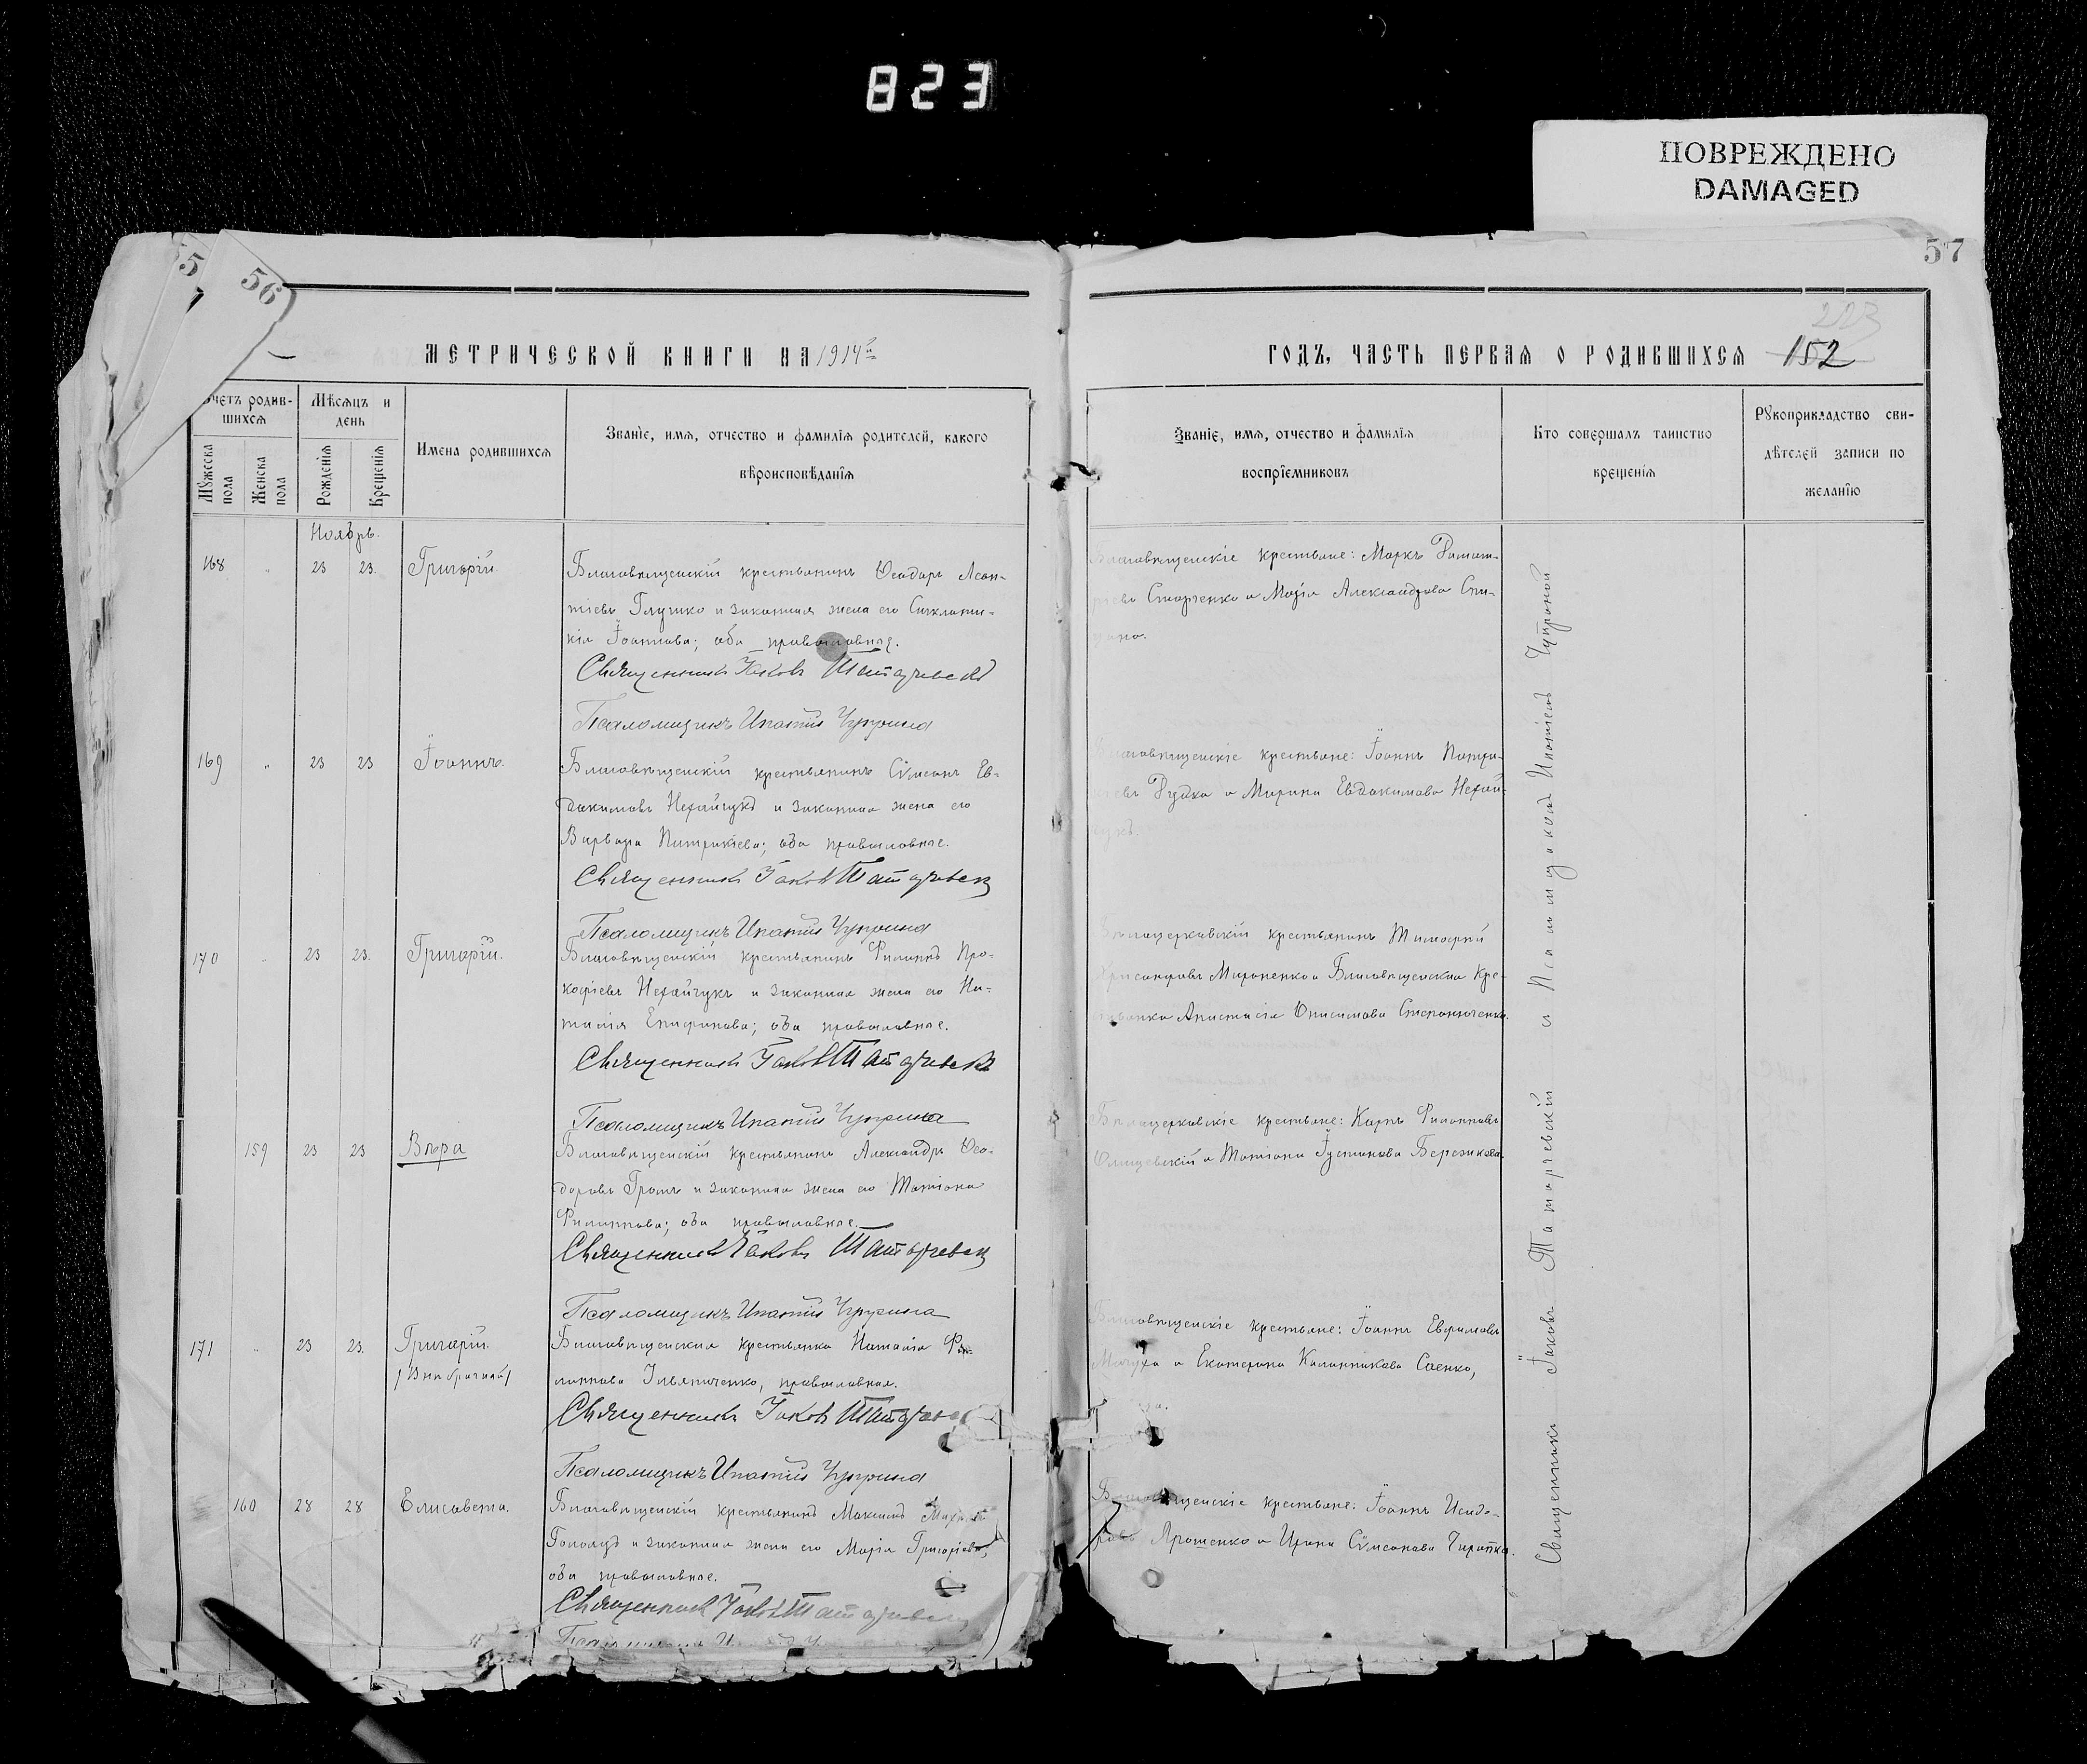 823
ПОВРЕЖДЕНО
DAMAGED
5
56
57
223
МЕТРИЧЕСКОЙ КНИГИ НА 1914й
ГОДЪ, ЧАСТЬ ПЕРВАЯ О РОДИВШИХСЯ 152
счетъ родив-
шихся
Мужеска пола
Женска пола
Мѣсяцъ и день
Рожденія
Крещенія
Имена родившихся
Званіе, имя, отчество и фамилія родителей, какого
вѣроисповѣданія
Званіе, имя, отчество и фамилія
воспріемниковъ
Кто совершалъ таинство
крещенія
Рукоприкладство сви-
дѣтелей записи по
желанію
Ноябрь.
168 " 23 23. Григорій
Благовѣщенскій крестьянинъ Ѳеодоръ Леон-
тіевъ Глушко и законная жена его Синклити-
кія Іоаннова; оба православные.
Священникъ Іаковъ Татарчевскій
Псаломщикъ Ипатій Чуприна
Благовѣщенскіе крестьяне: Маркъ
Старченко и Марія Александрова
169 " 23 23 Іоаннъ.
Благовѣщенскій крестьянинъ Сѵмеонъ Ев-
докимовъ Нехайчукъ и законная жена его
Варвара Патрикіева; оба православные.
Священникъ Іаковъ Татарчевскій
Псаломщикъ Ипатій Чуприна
Благовѣщенскіе крестьяне: Іоаннъ Патри-
Дудка и Марина Евдокимова Нехай-
чукъ.
170 " 23 23. Григорій.
Благовѣщенскій крестьянинъ Филиппъ Про-
кофіевъ Нехайчукъ и законная жена его На-
талія Епифанова; оба православные.
Священникъ Іаковъ Татарчевскій
Псаломщикъ Ипатій Чуприна
Бѣлоцерковскій крестьянинъ Тимофей
Мироненко и Благовѣщенская кре-
стьянка Анастасія Онисимова Степанюченко.
159 23 23 Вѣра
Благовѣщенскій крестьянинъ Александръ Ѳео-
доровъ Громъ и законная жена его Татіана
Филиппова; оба православные.
Священникъ Іаковъ Татарчевскій
Псаломщикъ Ипатій Чуприна
Бѣлоцерковскіе крестьяне: Карпъ Филипповъ
и Татіана Іустинова Березикова
171 " 23 23. Григорій.
/Внѣбрачный/
Благовѣщенская крестьянка Наталія Фи-
липпова Ильяшченко, православная.
Священникъ Іаковъ
Псаломщикъ Ипатій Чуприна
Благовѣщенскіе крестьяне: Іоаннъ Ефимовъ
Мачуха и Екатерина Каллиникова Саенко,
160 28 28 Елисавета.
Благовѣщенскій крестьянинъ Максимъ
и законная жена его Марія Григоріева;
оба православные.
Священникъ Іаковъ Татарчевскій
Благовѣщенскіе крестьяне: Іоаннъ Исидо-
ровъ Ярошенко и Ирина Сѵмеонова
Священникъ Іаковъ Татарчевскій и Псаломщикомъ Ипатіемъ Чуприной